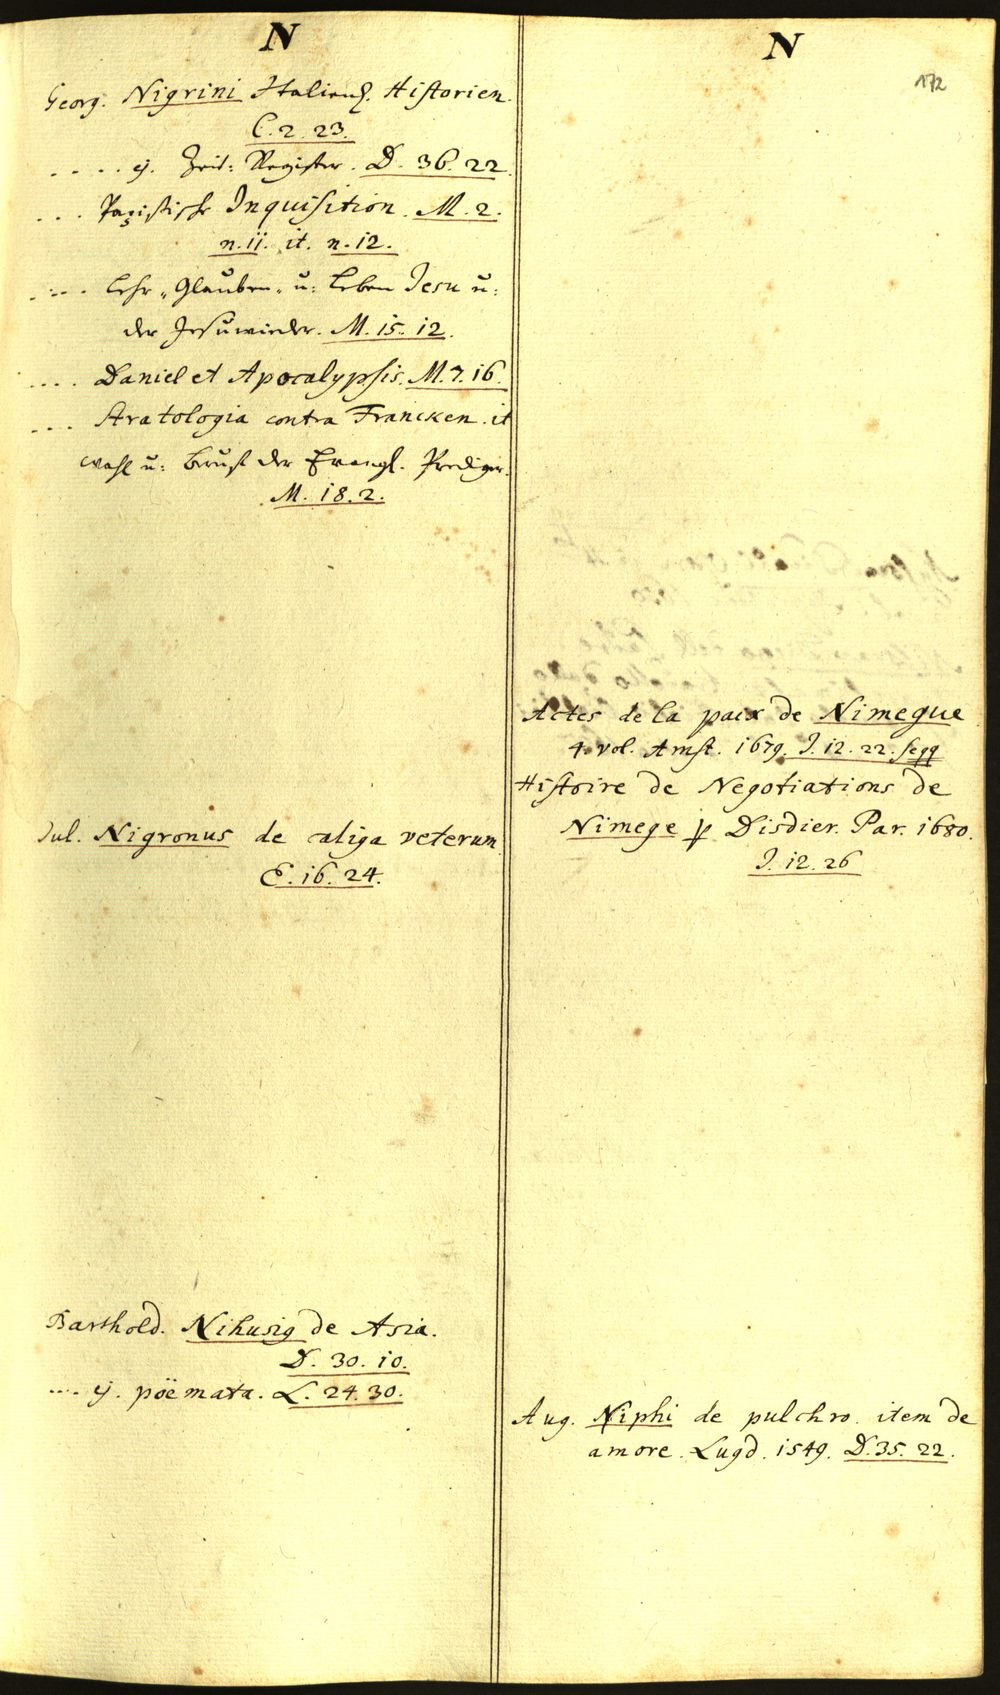 N
Georg. Nigrini Italienis. Historien.
C. 2. 23.
.... ej. Zeit: Register. D. 36. 22.
... Papistische Inquisition. M. 2.
n. 11. it. n. 12.
.... Lehr, Glauben, u: Leben Jesu u:
der Jesuwieder. M. 15. 12.
.... Daniel et Apocalypsis. M. 7. 16.
... Stratologia contra Francken. it
wahl u: Beruf der Evangl. Prediger.
M. 18. 2.
Jul. Nigronus de caliga veterum.
E. 16. 24.
Barthold. Nihusig de Asia.
D. 30. 10.
.... ej. pöemata. L. 24. 30.
N
172
Actes de la paix de Nimegue
4. vol. Amst. 1679. J. 12. 22. seqq
Histoire de Negotiations de
Nimege p Disdier. Par. 1680.
J. 12. 26
Aug. Niphi de pulchro. item de
amore. Lugd. 1549. D. 35. 22.